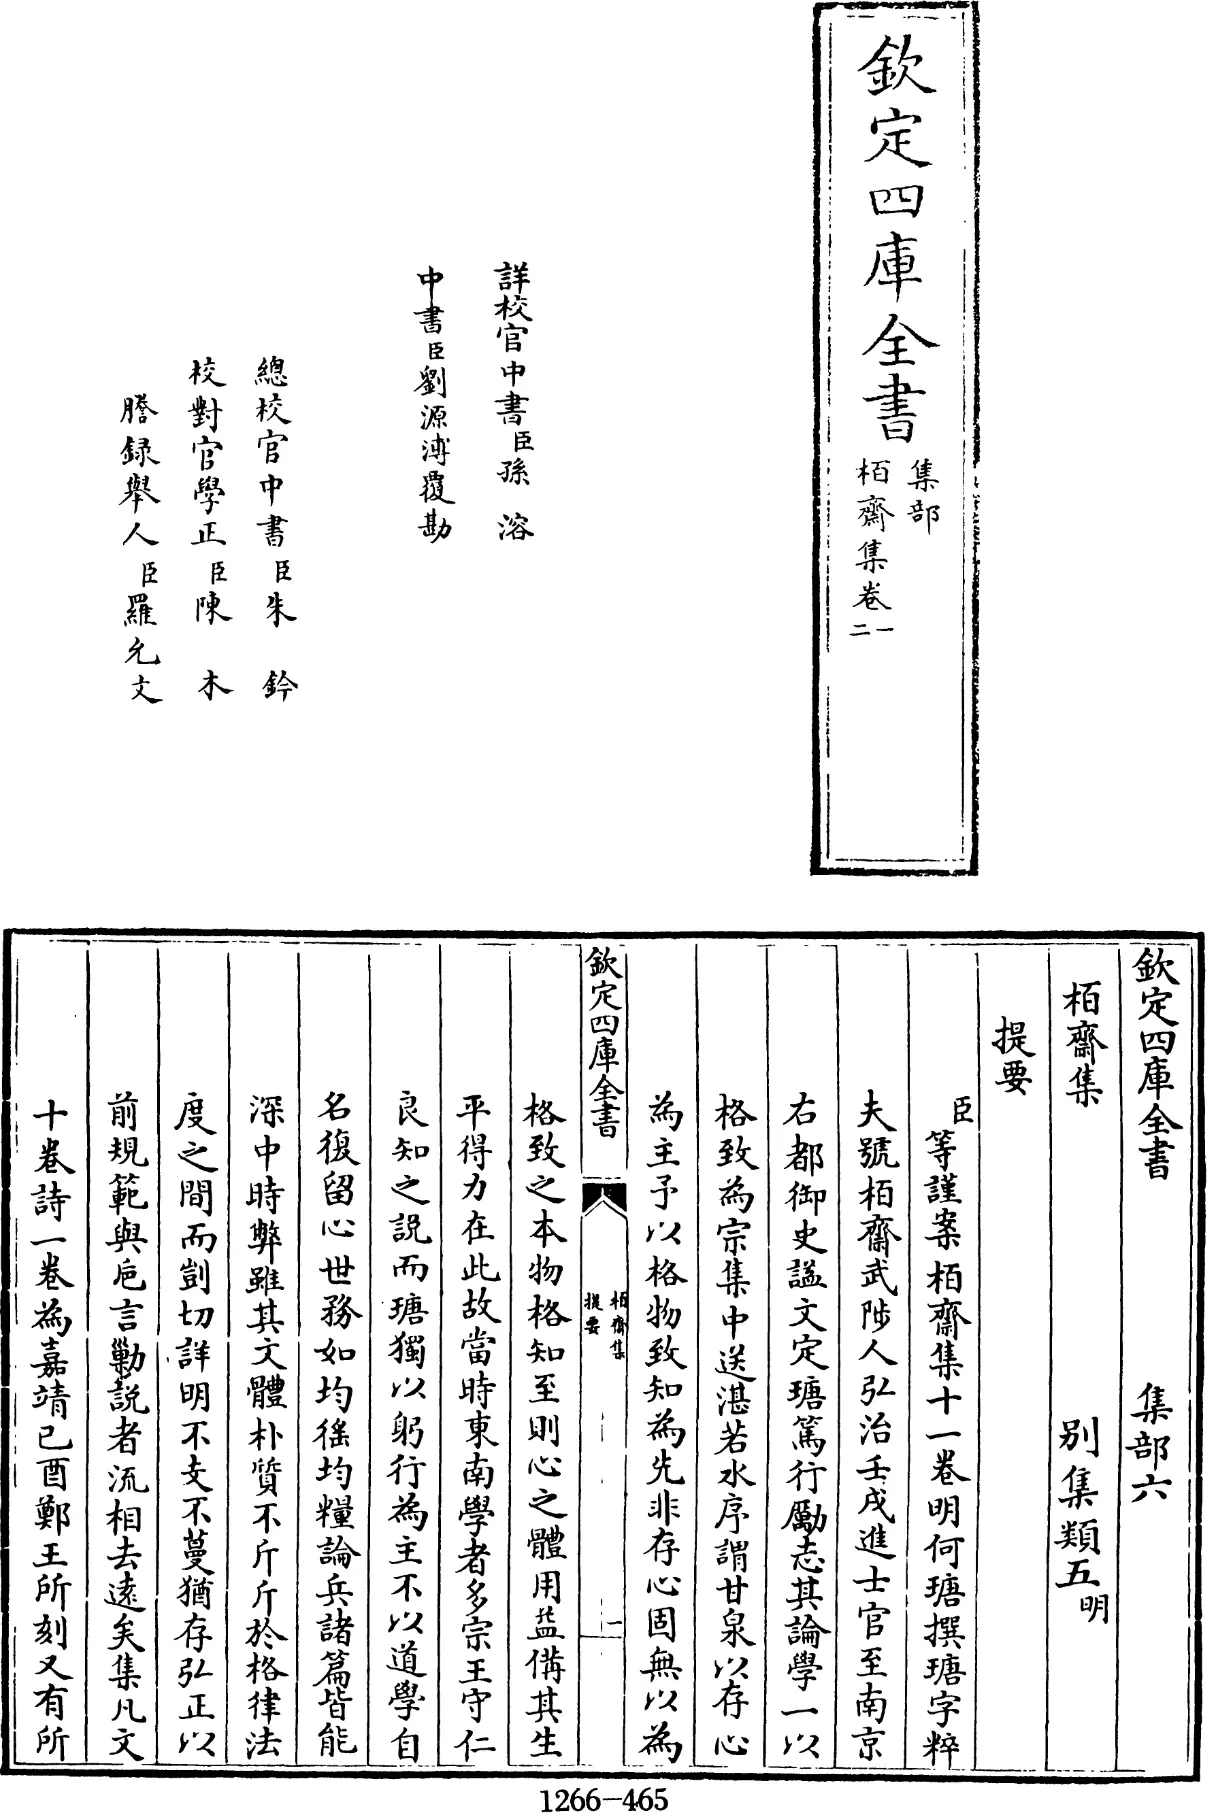 欽定四庫全書
集部
栢齋集卷一二
詳校官中書臣孫溶
中書臣劉源溥覆勘
總校官中書臣朱鈐
校對官學正臣陳木
謄録舉人臣羅允文
欽定四庫全書 集部六
栢齋集 別集類五明
提要
臣等謹案栢齋集十一卷明何瑭撰瑭字粹
夫號栢齋武陟人弘治壬戌進士官至南京
右都御史謚文定瑭篤行勵志其論學一以
格致為宗集中送湛若水序謂甘泉以存心
為主予以格物致知為先非存心固無以為
欽定四庫全書
栢齋集
提要
一
格致之本物格知至則心之體用益備其生
平得力在此故當時東南學者多宗王守仁
良知之説而瑭獨以躬行為主不以道學自
名復留心世務如均徭均糧論兵諸篇皆能
深中時弊雖其文體朴質不斤斤於格律法
度之間而剴切詳明不支不蔓猶存弘正以
前規範與巵言勦説者流相去遠矣集凡文
十卷詩一卷為嘉靖己酉鄭王所刻又有所
1266-465